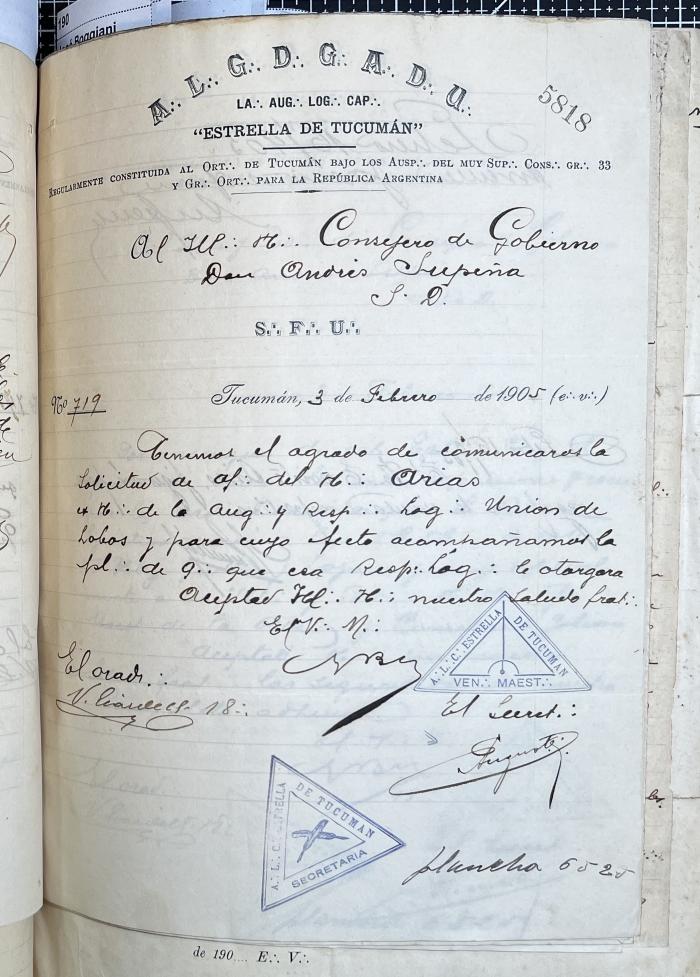 190
José Boggiani
A∴ L∴ G∴ D∴ G∴ A∴ D∴ U∴
5818
LA∴ AUG∴ LOG∴ CAP∴
"ESTRELLA DE TUCUMÁN"
REGULARMENTE CONSTITUIDA AL ORT∴ DE TUCUMÁN BAJO LOS AUSP∴ DEL MUY SUP∴ CONS∴ GR∴ 33
Y GR∴ ORT∴ PARA LA REPÚBLICA ARGENTINA
Al Ill∴ H∴ Consejero de Gobierno
Don Andrés Supeña
S. D.
S∴ F∴ U∴
Nº 719
Tucumán, 3 de Febrero de 1905 (e∴ v∴)
Tenemos el agrado de comunicaros la
solicitud de af∴ del H∴ Arias
H∴ de la Aug∴ y Resp∴ Log∴ Union de
Lobos y para cuyo fecto acompañamos la
pl∴ de q∴ que esa Resp∴ Log∴ le otorgara
Aceptad Ill∴ H∴ nuestro saludo frat∴
El V∴ M∴
A∴ L∴ C∴ ESTRELLA DE TUCUMAN
VEN∴ MAEST∴
El orad∴
18∴
El Secret∴
A∴ L∴ C∴ ESTRELLA DE TUCUMAN
SECRETARIA
plancha 6525
de 190.... E∴ V∴